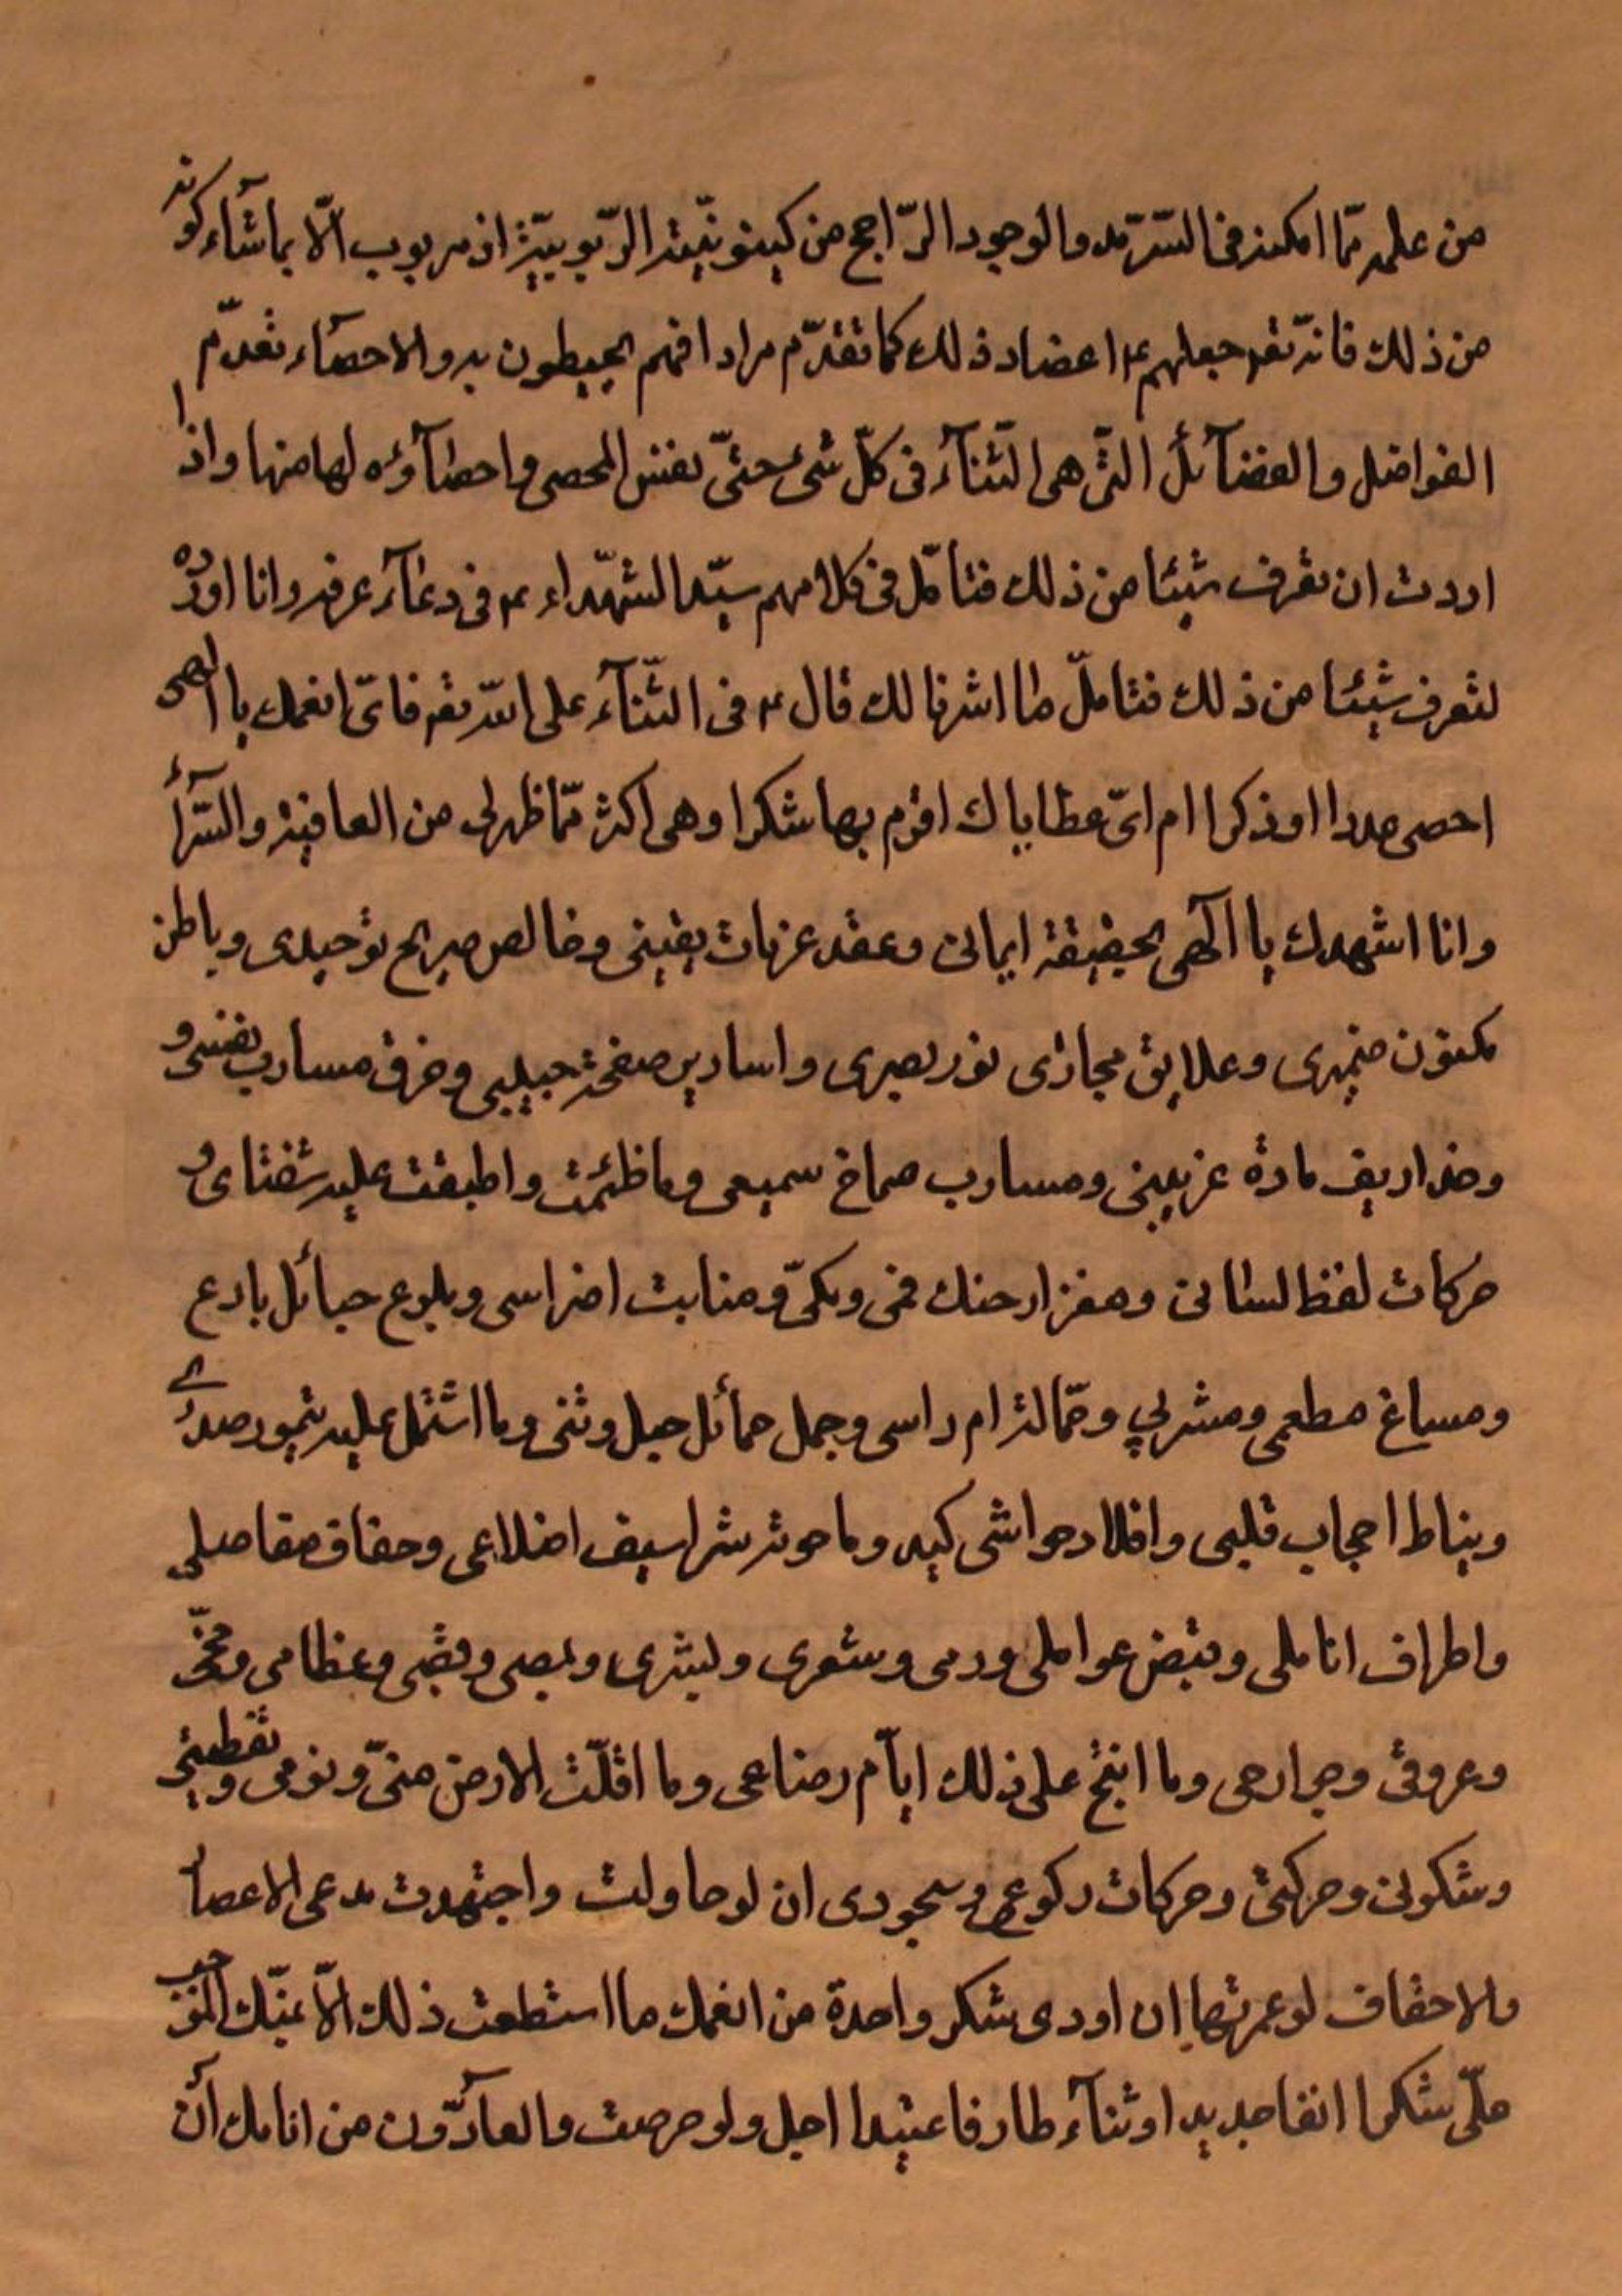 من علمه ممّا امكنه فى السّرمد والوجود الرّاجح من كينونيّته الربوبيّة اذ مربوب الّا بما شآء كونه
من ذلك فانّه تعۤ جعلهم ع اعضاد ذلك كما تقدّم مرادا فهم المحيطون به والاحصآء تقدّم
الفواضل والفضآئل الّتى هى الثّنآء فى كلّ شئ حتىّ نفس المحصى واحصآؤه لها منها واذا
اردت ان تعرف شيئا من ذلك فتأمّل فى كلامهم سيّد الشّهداء ع فى دعآء عرفه وانا اورده
لتعرف شيئا من ذلك فتامّل ما اشرنا لك قال ع فى الثّنآء على الله تعۤ فاىّ انعمك يا الهى
احصى عددا او ذكرا ام اىّ عطاياك اقوم بها شكرا وهى اكثر ممّا ظهر لى من العافية والسّرآء
وانا اشهدك يا الٓهى بحقيقة ايمانى وعقد عزمات يقينى وخالص صريح توحيدى وباطن
مكنون ضميرى وعلايق مجارى نور بصرى واسارير صفحة جبينى وخرق مسارب نفسى و
وخذاريف مارة عرنينى ومسارب صماخ سمعى وما ظئمت واطبقت عليه شفتاى و
حركات لفظ لسانى ومغرز ارحنك فمى وفكىّ ومنابت اضراسى وبلوع حبائل بارع
ومساغ مطعمى ومشربى وحمّالة ام راسى وجمل حمائل حبل وتنى وما اشتمل عليه تامور صدرى
ونياط احجاب قلبى وافلاد حواشى كبد وما حوته شراسيف اضلاعى وحقاق مفاصلى
واطراف اناملى وقبض عواملى ودمى وشعرى وبشرى وعصبى وقصبى وعظامى ومخّى
وعروقى وجوارحى وما انتج على ذلك ايّام رضاعى وما اقلّت الارض منّى ونومى ويقظتى
وسكونى وحركتى وحركات ركوعى وسجودى ان لو حاولت واجتهدت مدعى الاعصار
والاحقاف لو عمرتها ان اودى شكر واحدة من انعمك ما استطعت ذلك الّا بمنّك الموجب
علىّ شكرا انفا جديد او ثنآء طارفا عتيدا اجل ولو حرصت والعآدّون من انامك أن